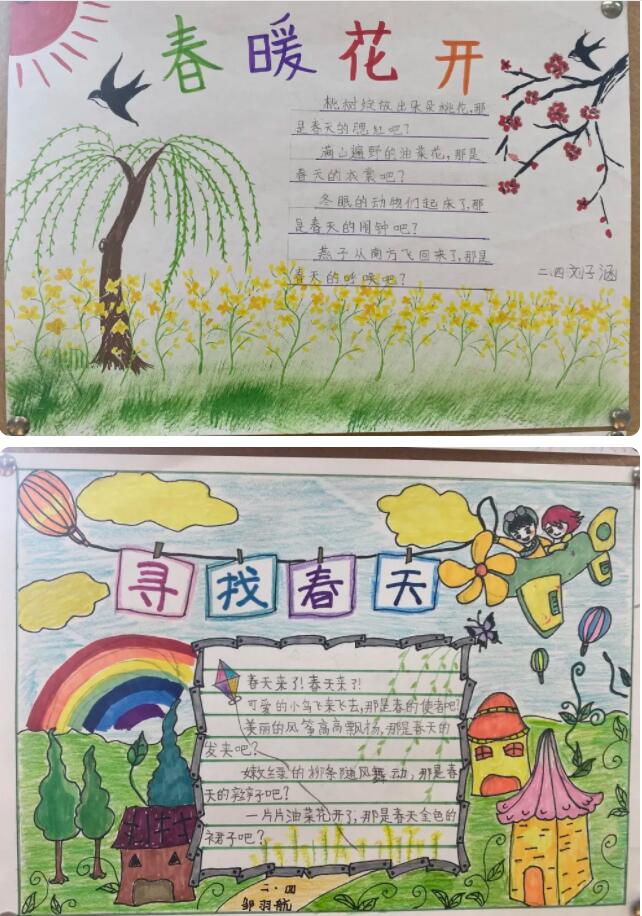 春暖花开
桃树绽放出朵朵桃花,那
是春天的腮红吧?
满山遍野的油菜花,那是
春天的衣裳吧?
冬眠的动物们起床了,那
是春天的闹钟吧?
燕子从南方飞回来了,那是
春天的呼唤吧?
二.四刘子涵
寻找春天
春天来了!春天来了!
可爱的小鸟飞来飞去,那是春的使者吧?
美丽的风筝高高飘扬,那是春天的
发夹吧?
嫩绿的柳条随风舞动,那是春
天的辫子吧?
一片片油菜花开了,那是春天金色的
裙子吧?
二.四
邹羽航